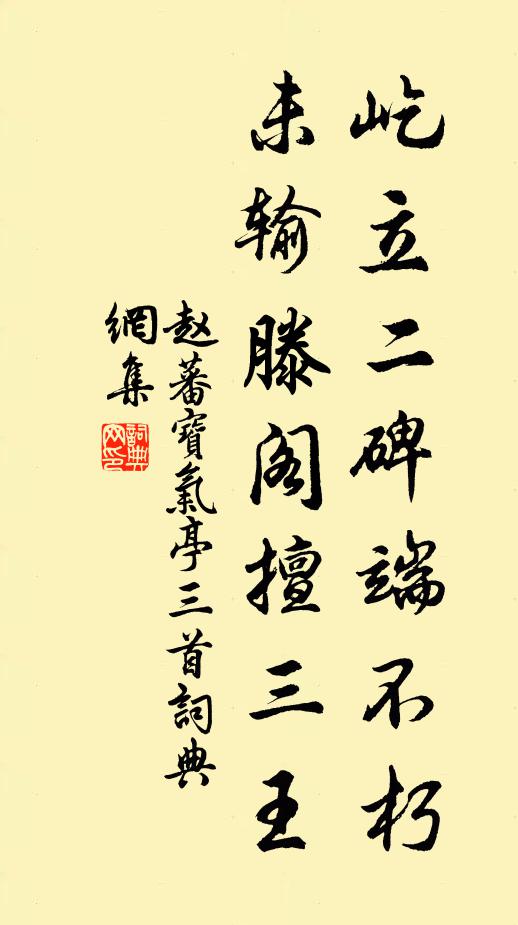 屹立二碑端不朽
未输滕阁擅三王
赵蕃寶氣亭三首詞典
網集
詞典
网印